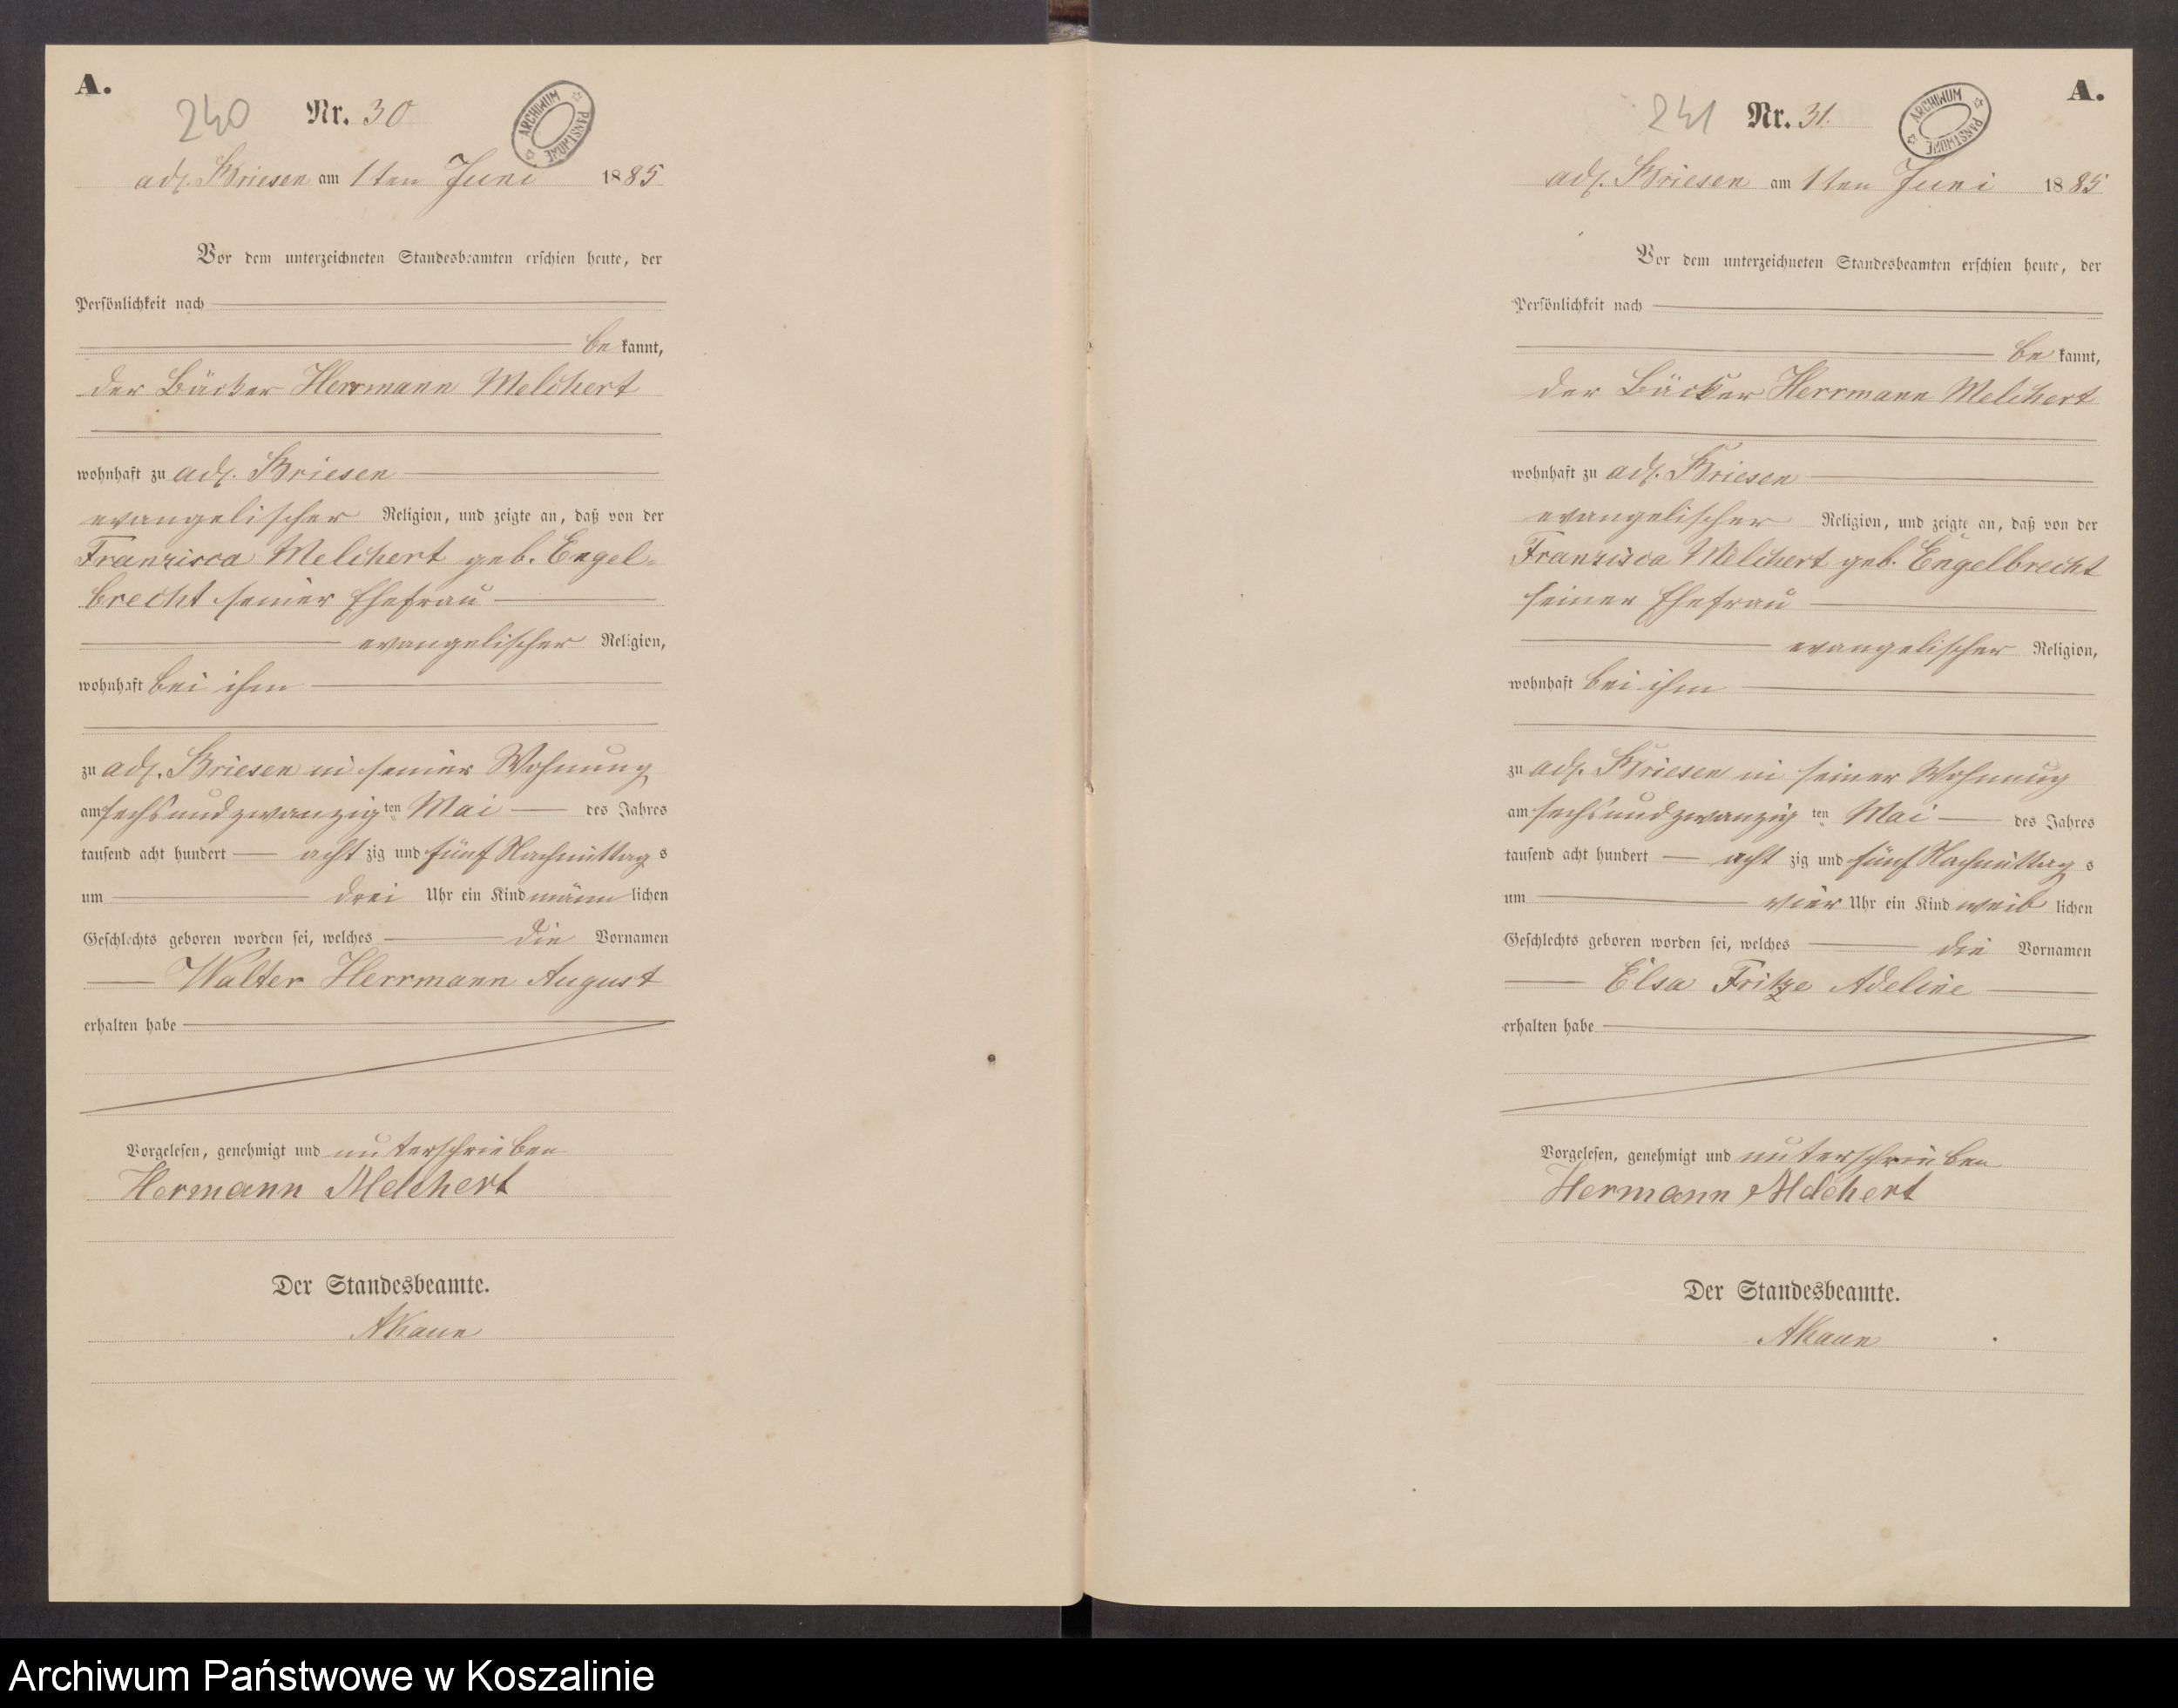 A.
240 Nr. 30
ARCHIWUM PAŃSTWOWE
adl. Briesen am 1ten Juni 1885
Vor dem unterzeichneten Standesbeamten erschien heute, der
Persönlichkeit nach
be kannt,
der Bäcker Herrmann Melchert
wohnhaft zu adl. Briesen
evangelischer Religion, und zeigte an, daß von der
Franzisca Melchert geb. Engel-
brecht seiner Ehefrau
evangelischer Religion,
wohnhaft bei ihm
zu adl. Briesen in seiner Wohnung
am sechsundzwanzig ten Mai des Jahres
tausend acht hundert acht zig und fünf Nachmittag s
um drei Uhr ein Kind männ lichen
Geschlechts geboren worden sei, welches die Vornamen
Walter Herrmann August
erhalten habe
Vorgelesen, genehmigt und unterschrieben
Hermann Melchert
Der Standesbeamte.
A.
241 Nr. 31.
ARCHIWUM PAŃSTWOWE
adl. Briesen am 1ten Juni 1885
Vor dem unterzeichneten Standesbeamten erschien heute, der
Persönlichkeit nach
be kannt,
der Bäcker Herrmann Melchert
wohnhaft zu adl. Briesen
evangelischer Religion, und zeigte an, daß von der
Franzisca Melchert geb. Engelbrecht
seiner Ehefrau
evangelischer Religion,
wohnhaft bei ihm
zu adl. Briesen in seiner Wohnung
am sechsundzwanzig ten Mai des Jahres
tausend acht hundert acht zig und fünf Nachmittag s
um vier Uhr ein Kind weib lichen
Geschlechts geboren worden sei, welches die Vornamen
Elsa Fritze Adeline
erhalten habe
Vorgelesen, genehmigt und unterschrieben
Hermann Melchert
Der Standesbeamte.
Archiwum Państwowe w Koszalinie